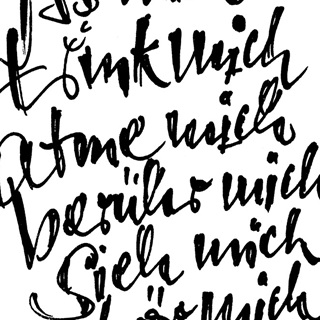 trink mich
atme mich
berühr mich
Sieh mich
hör mich